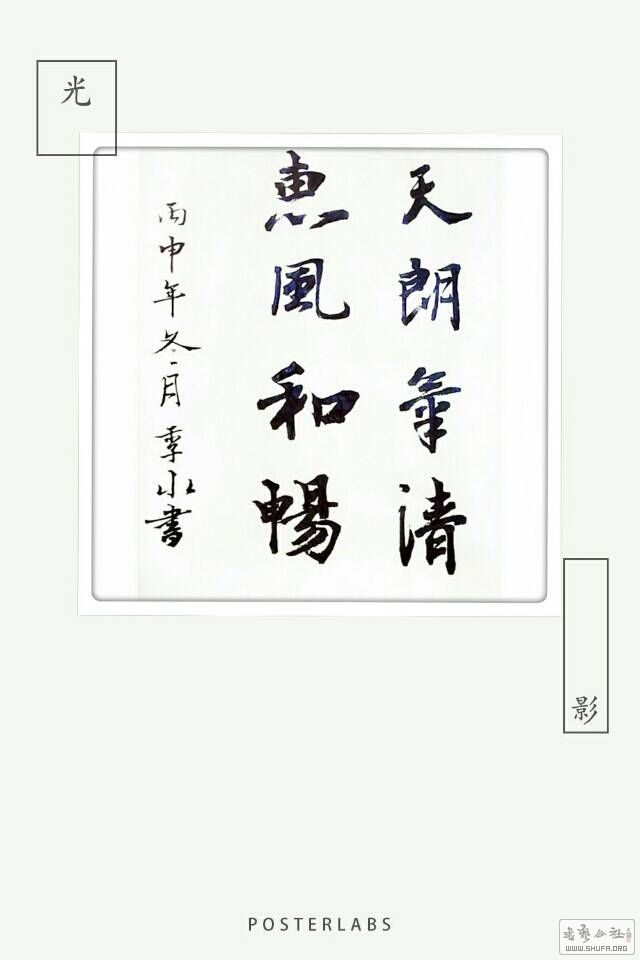 光
天朗氣清
惠風和暢
丙申年冬月季水書
影
POSTERLABS
书艺公社
WWW.SHUFA.ORG